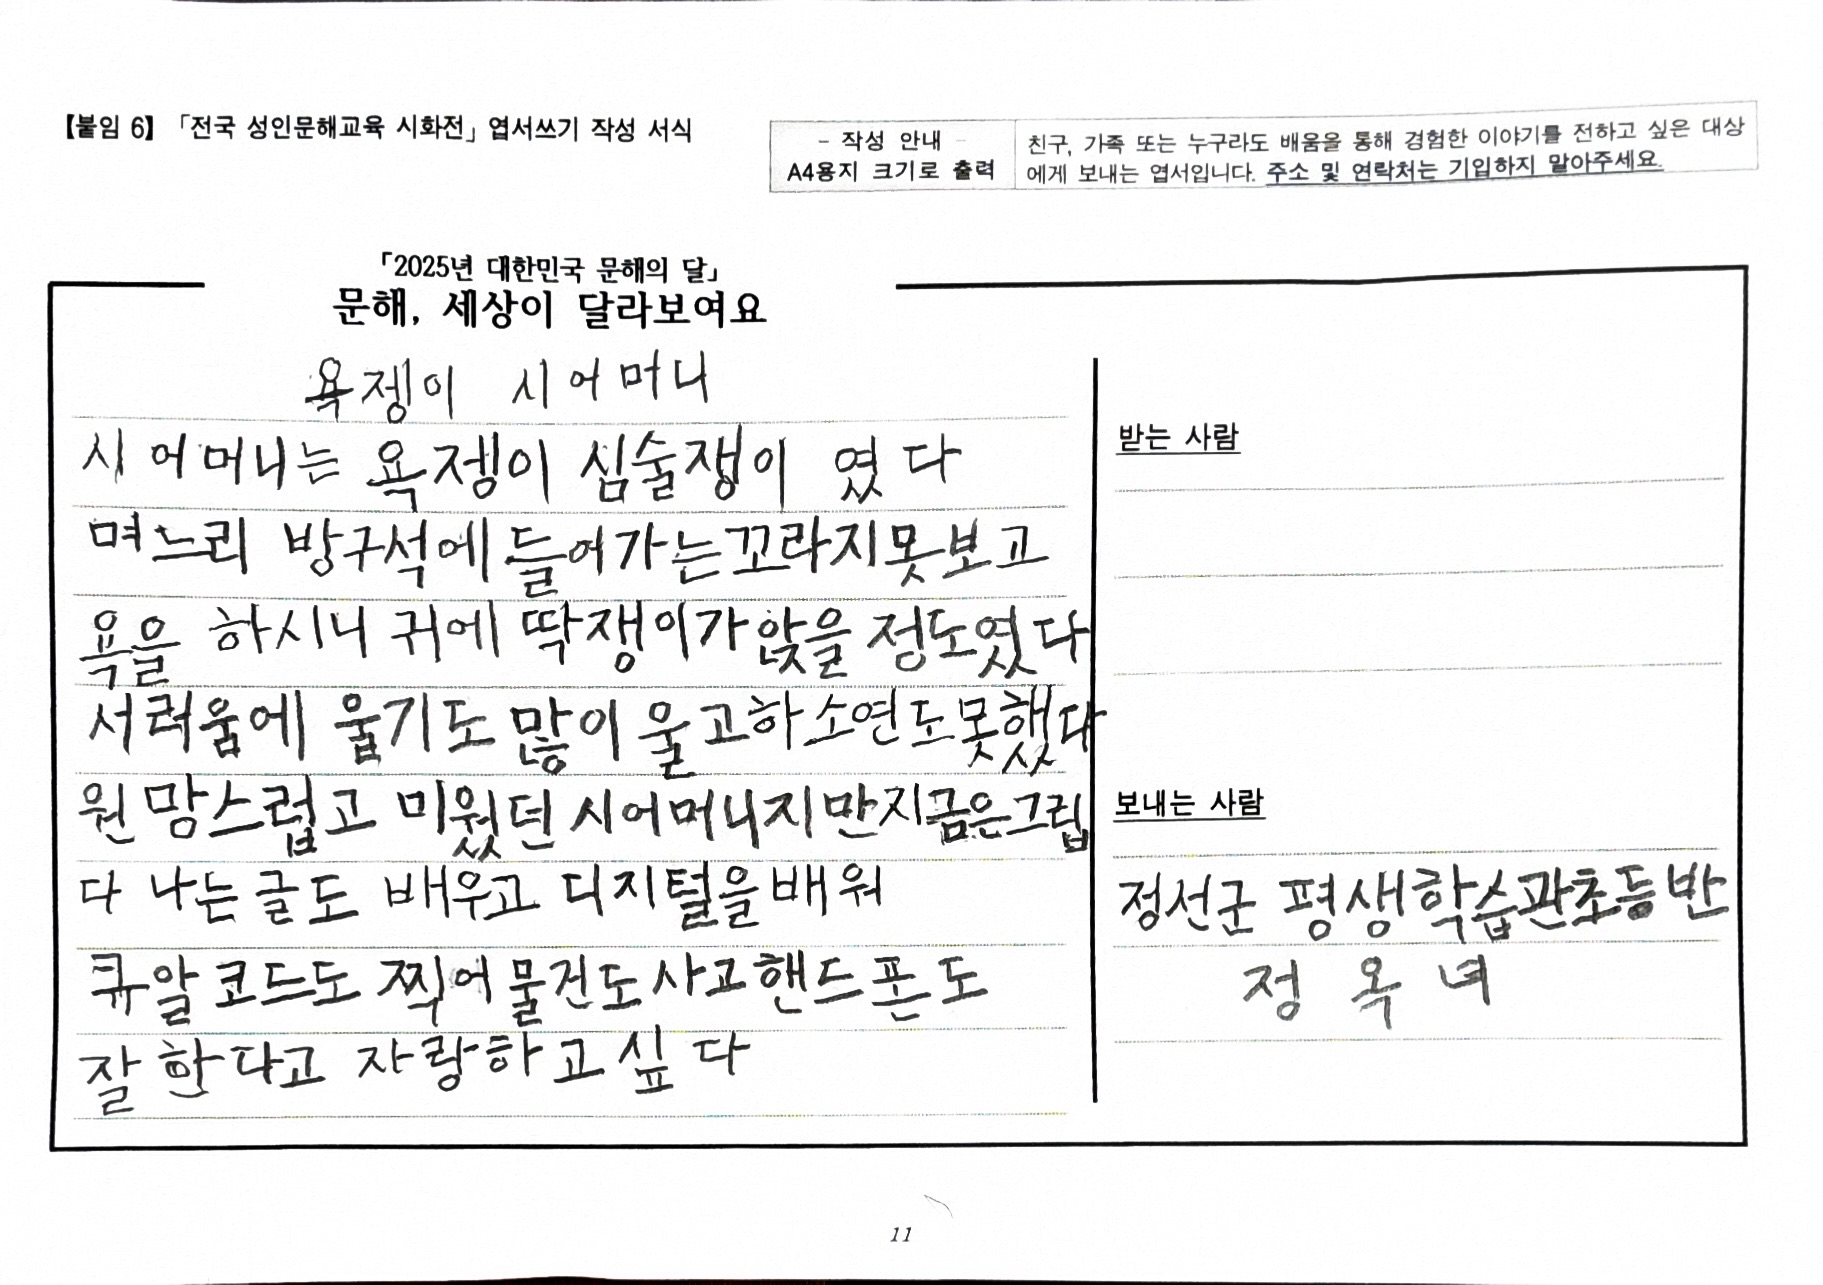 【붙임 6】 「전국 성인문해교육 시화전」 엽서쓰기 작성 서식
- 작성 안내 -
A4용지 크기로 출력
친구, 가족 또는 누구라도 배움을 통해 경험한 이야기를 전하고 싶은 대상
에게 보내는 엽서입니다. 주소 및 연락처는 기입하지 말아주세요.
「2025년 대한민국 문해의 달」
문해, 세상이 달라보여요
욕젱이 시어머니
시어머니는 욕젱이 심술쟁이 였다
며느리 방구석에 들어가는꼬라지못보고
욕을 하시니 귀에 딱쟁이가앉을 정도였다
서러움에 웁기도 많이 울고하소연도못했다
원망스럽고 미웠던 시어머니지만지금은그립
다 나는글도 배우고 디지털을배워
큐알코드도 찍어물건도사고핸드폰도
잘한다고 자랑하고싶다
받는 사람
보내는 사람
정선군 평생학습관초등반
정옥녀
11